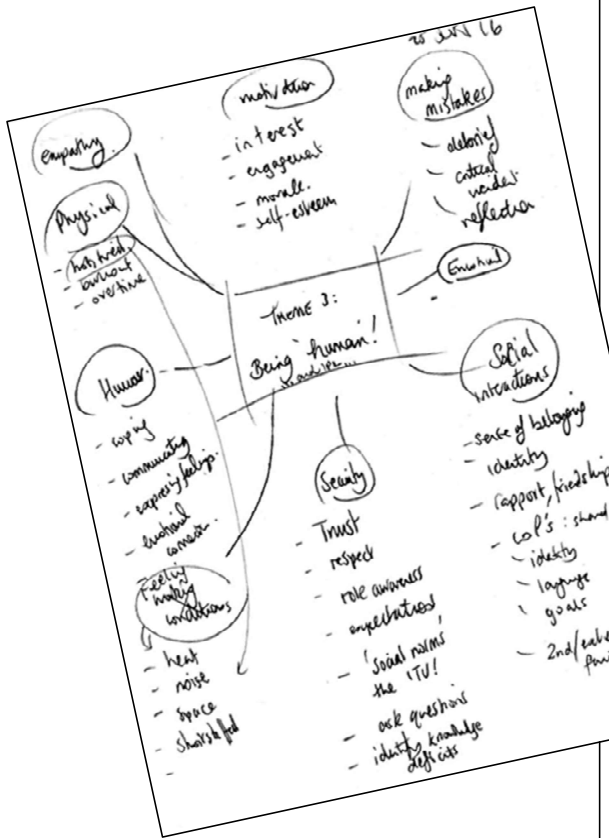 20 JUN 16
motivation
- interest
- engagement
- morale.
- self-esteem
making
mistakes
- debrief
- critical
incident
- reflection
empathy.
Physical
- hot/tired.
- burnout
- overtime
Emotional
THEME 3:
Being 'human'!
Humour.
- coping
- communicating
- expressing feelings.
- emotional
Social
interactions
- sense of belonging
- identity
- rapport, friendship
- CoP's : shared
- identity
- language
- goals
Security
- Trust
- respect
- role awareness
- expectations
- 'social norms'
the 'ITU'!
- ask questions
- identify knowledge
deficits
working
conditions
- heat
- noise
- space
- shortstaffed
-